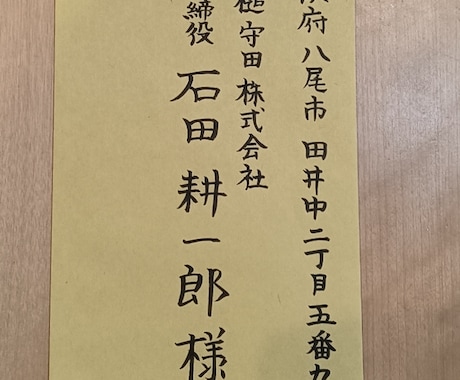 府 八尾市 田井中二丁目五番九
守田株式会社
締役 石田耕一郎様